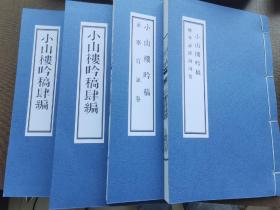 小山樓吟稿肆編
小山樓吟稿肆編
小山樓吟稿
小山樓吟稿